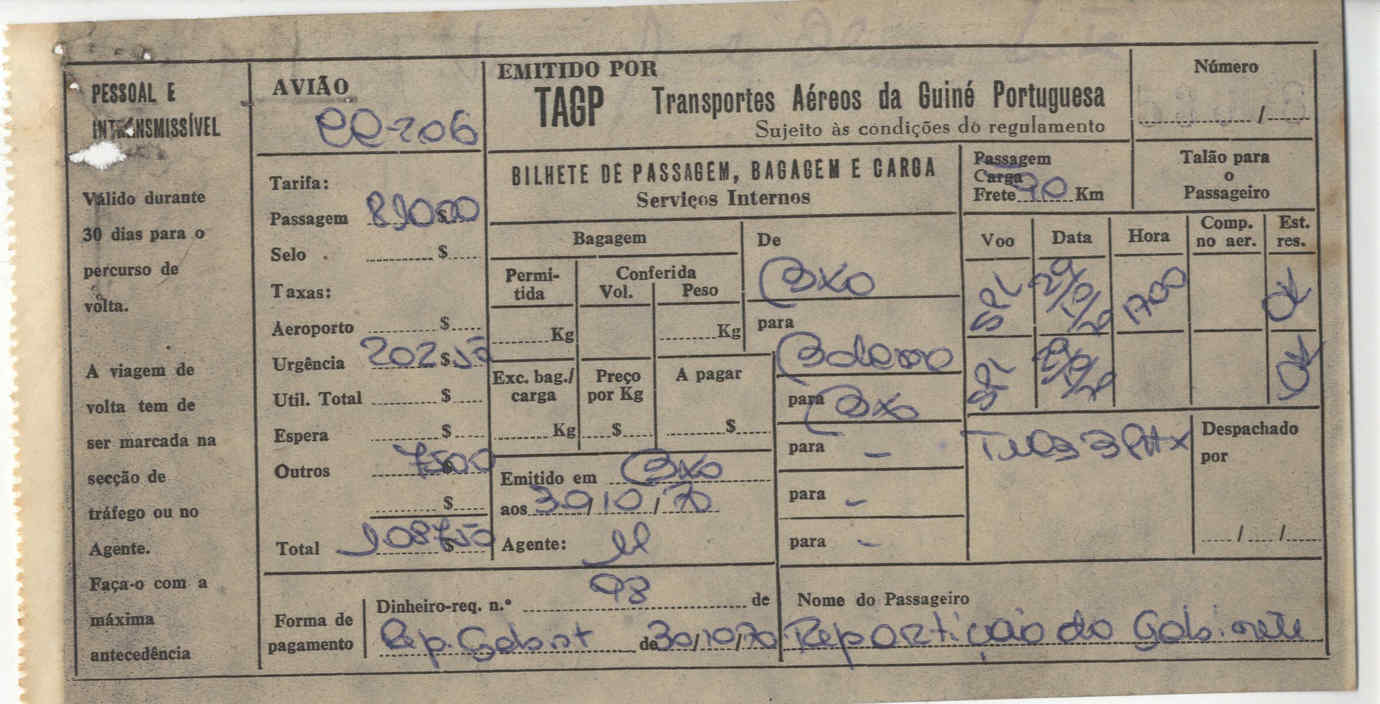 PESSOAL E
INTRANSMISSÍVEL
Válido durante
30 dias para o
percurso de
volta.
A viagem de
volta tem de
ser marcada na
secção de
tráfego ou no
Agente.
Faça-o com a
máxima
antecedência
AVIÃO
Tarifa:
Passagem 810$00
Selo $
Taxas:
Aeroporto $
Urgência 202$50
Util. Total $
Espera $
Outros 75$00
$
Total 1087$50
EMITIDO POR
TAGP Transportes Aéreos da Guiné Portuguesa
Sujeito às condições do regulamento
Número
/
BILHETE DE PASSAGEM, BAGAGEM E CARGA
Serviços Internos
Passagem
Carga
Frete 90 Km
Talão para
o
Passageiro
Bagagem
Permi-
tida
Conferida
Vol. Peso
Kg Kg
Exc. bag./
carga
Preço
por Kg
A pagar
Kg $ $
Emitido em Bxo
aos 30/10/70
Agente:
De
Bxo
para
para Bxo
para –
para –
para –
Voo Data Hora Comp.
no aer. Est.
res.
SPL 29/10/70 1700 OK
SPL 29/10/70 OK
3 PAX
Despachado
por
/ /
Forma de
pagamento
Dinheiro-req. n.º 98 de
Rep. Gabinet de 30/10/70
Nome do Passageiro
Repartição do Gabinete